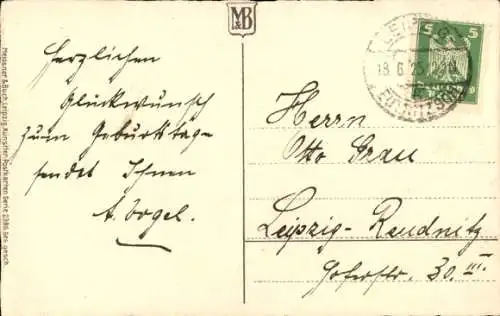 M&B
Herzlichen
Glückwunsch
zum Geburtstage
sendet Ihnen
A. Vogel.
LEIPZIG
18.6.25
EUTRITZSCH
5 5
Herrn
Otto Grau
Leipzig-Reudnitz
Hoferstr. 30. III.
Meissner & Buch, Leipzig, Künstler-Postkarten Serie 2386 Ges. gesch.